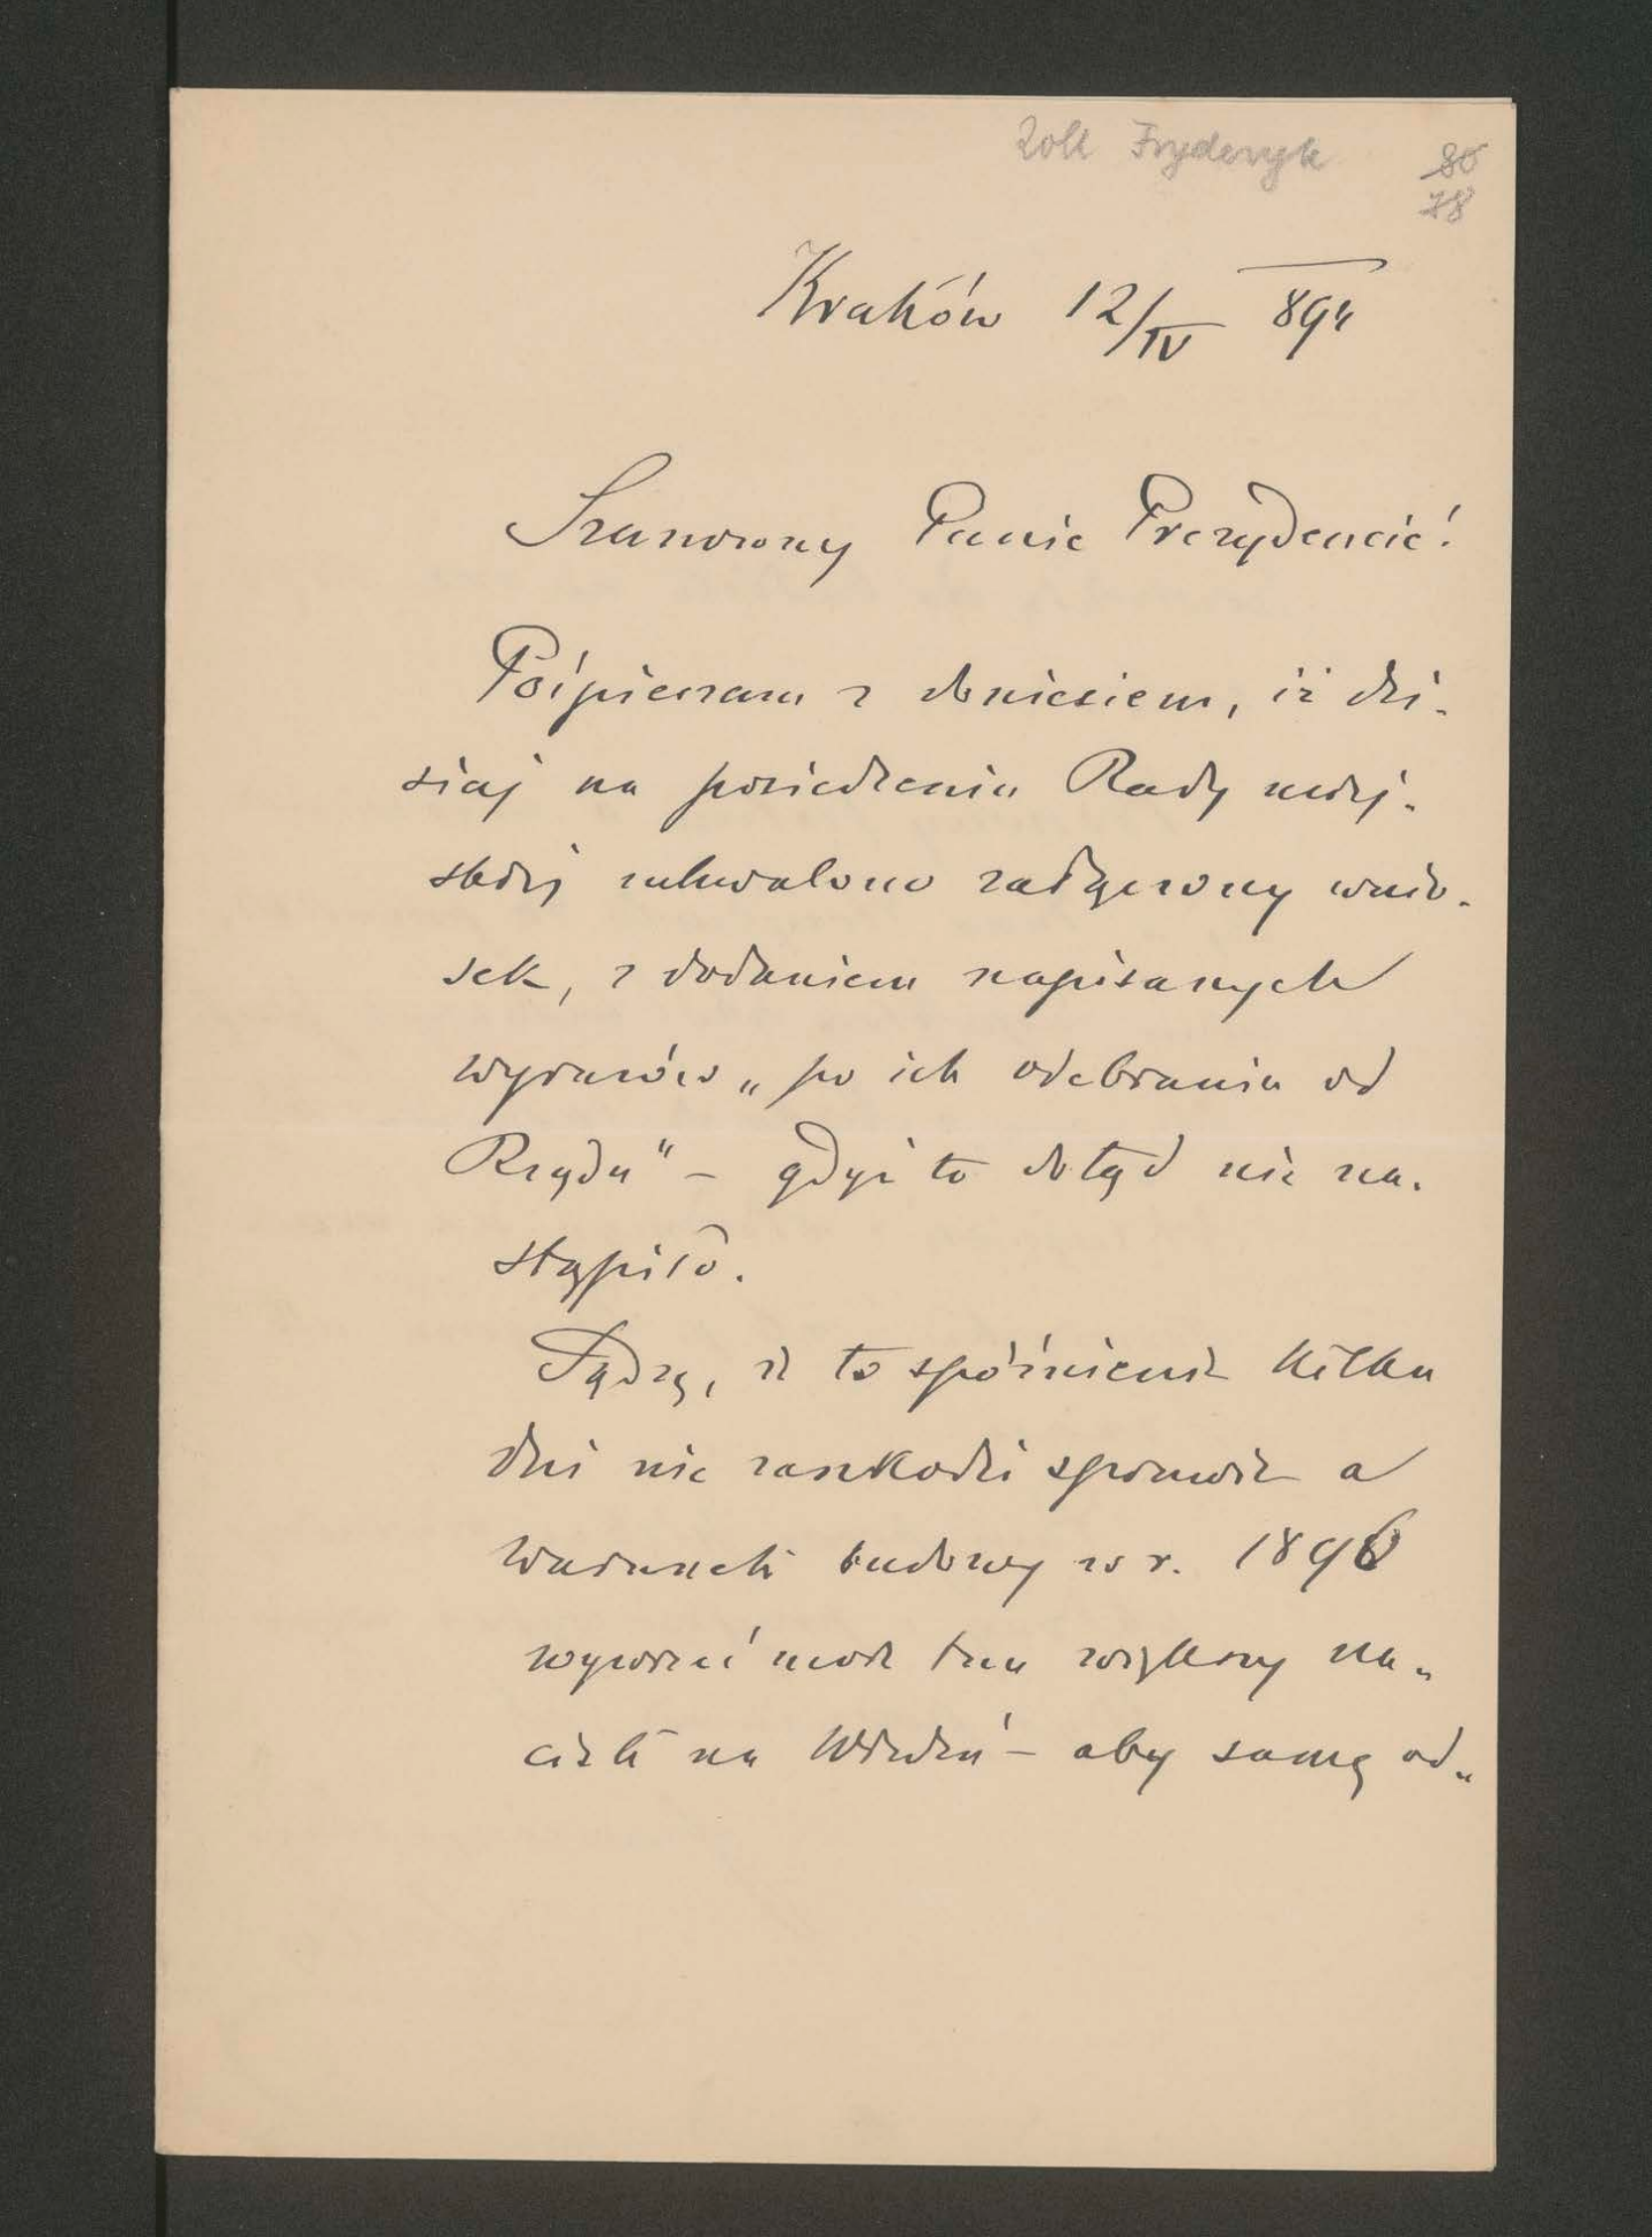 Zoll Fryderyk
80
78
Kraków 12/IV 894
Szanowny Panie Prezydencie!
Pośpieszam z doniesiem, iż dzi-
siaj na posiedzeniu Rady miej-
skiej uchwalono załączony wnio-
sek, z dodaniem napisanych
wyrazów „po ich odebraniu od
Rządu" – gdyż to dotąd nie na-
stąpiło.
Sądzę, iż to spóźnienie kilku
dni nie zaszkodzi sprawie a
warunek budowy w r. 1896
wywrzeć może tem większy na-
cisk na Wiedeń – aby samą od-